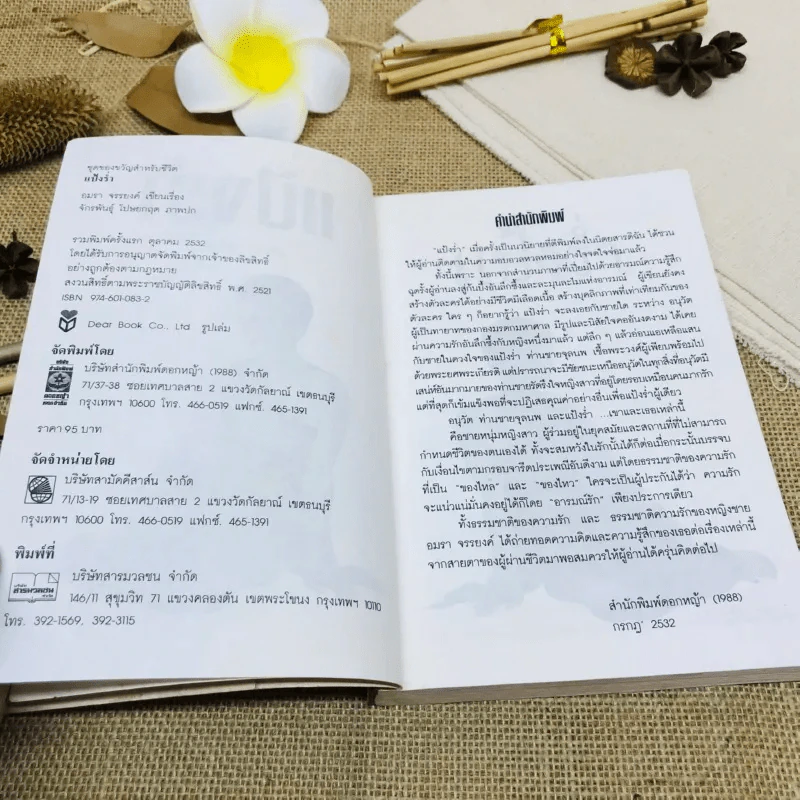 ชุดของขวัญสำหรับชีวิต
แป้งร่ำ
อมรา จรรยงค์ เขียนเรื่อง
จักรพันธุ์ โปษยกฤต ภาพปก
รวมพิมพ์ครั้งแรก ตุลาคม 2532
โดยได้รับการอนุญาตจัดพิมพ์จากเจ้าของลิขสิทธิ์
อย่างถูกต้องตามกฎหมาย
สงวนสิทธิ์ตามพระราชบัญญัติลิขสิทธิ์ พ.ศ. 2521
ISBN 974-601-083-2
Dear Book Co., Ltd รูปเล่ม
จัดพิมพ์โดย
บริษัทสำนักพิมพ์ดอกหญ้า (1988) จำกัด
71/37-38 ซอยเทศบาลสาย 2 แขวงวัดกัลยาณ์ เขตธนบุรี
กรุงเทพฯ 10600 โทร. 466-0519 แฟกซ์. 465-1391
ราคา 95 บาท
จัดจำหน่ายโดย
บริษัทสามัคคีสาส์น จำกัด
71/13-19 ซอยเทศบาลสาย 2 แขวงวัดกัลยาณ์ เขตธนบุรี
กรุงเทพฯ 10600 โทร. 466-0519 แฟกซ์. 465-1391
พิมพ์ที่
บริษัทสารมวลชน จำกัด
146/11 สุขุมวิท 71 แขวงคลองตัน เขตพระโขนง กรุงเทพฯ 10110
โทร. 392-1569, 392-3115
คำนำสำนักพิมพ์
"แป้งร่ำ" เมื่อครั้งเป็นนวนิยายที่ตีพิมพ์ลงในนิตยสารดิฉัน ได้ชวน
ให้ผู้อ่านติดตามในความหอมอวลหวลหอมอย่างใจจดใจจ่อมาแล้ว
ทั้งนี้เพราะ นอกจากสำนวนภาษาที่เปี่ยมไปด้วยอารมณ์ความรู้สึก
ฉุดรั้งผู้อ่านลงสู่ก้นบึ้งอันลึกซึ้งและละมุนละไมแห่งอารมณ์ ผู้เขียนยังคง
สร้างตัวละครได้อย่างมีชีวิตมีเลือดเนื้อ สร้างบุคลิกภาพที่เท่าเทียมกันของ
ตัวละคร ใคร ๆ ก็อยากรู้ว่า แป้งร่ำ จะลงเอยกับชายใด ระหว่าง อนุวัต
ผู้เป็นทายาทของกองมรดกมหาศาล มีรูปและนิสัยใจคออันงดงาม ได้เคย
ผ่านความรักอันลึกซึ้งกับหญิงหนึ่งมาแล้ว แต่ลึก ๆ แล้วอ่อนแอเหลือแสน
กับชายในดวงใจของแป้งร่ำ ท่านชายจุลนพ เชื้อพระวงศ์ผู้เพียบพร้อมไป
ด้วยพระยศพระเกียรติ แต่ปรารถนาจะมีชัยชนะเหนืออนุวัตในทุกสิ่งที่อนุวัตมี
เสน่ห์อันมากมายของท่านชายรัดรึงใจหญิงสาวที่อยู่โดยรอบเหมือนคนมากรัก
แต่ที่สุดก็เข้มแข็งพอที่จะปฏิเสธคุณค่าอย่างอื่นเพื่อแป้งร่ำผู้เดียว
อนุวัต ท่านชายจุลนพ และแป้งร่ำ ...เขาและเธอเหล่านี้
คือชายหนุ่มหญิงสาว ผู้ร่วมอยู่ในยุคสมัยและสถานที่ที่ไม่สามารถ
กำหนดชีวิตของตนเองได้ ทั้งจะสมหวังในรักนั้นได้ก็ต่อเมื่อกระนั้นบรรจบ
กับเงื่อนไขตามกรอบจารีตประเพณีอันดีงาม แต่โดยธรรมชาติของความรัก
ที่เป็น "ของไหล" และ "ของไหว" ใครจะเป็นผู้ประกันได้ว่า ความรัก
จะแน่วแน่มั่นคงอยู่ได้ก็โดย "อารมณ์รัก" เพียงประการเดียว
ทั้งธรรมชาติของความรัก และ ธรรมชาติความรักของหญิงชาย
อมรา จรรยงค์ ได้ถ่ายทอดความคิดและความรู้สึกของเธอต่อเรื่องเหล่านี้
จากสายตาของผู้ผ่านชีวิตมาพอสมควรให้ผู้อ่านได้ครุ่นคิดต่อไป
สำนักพิมพ์ดอกหญ้า (1988)
กรกฎ' 2532